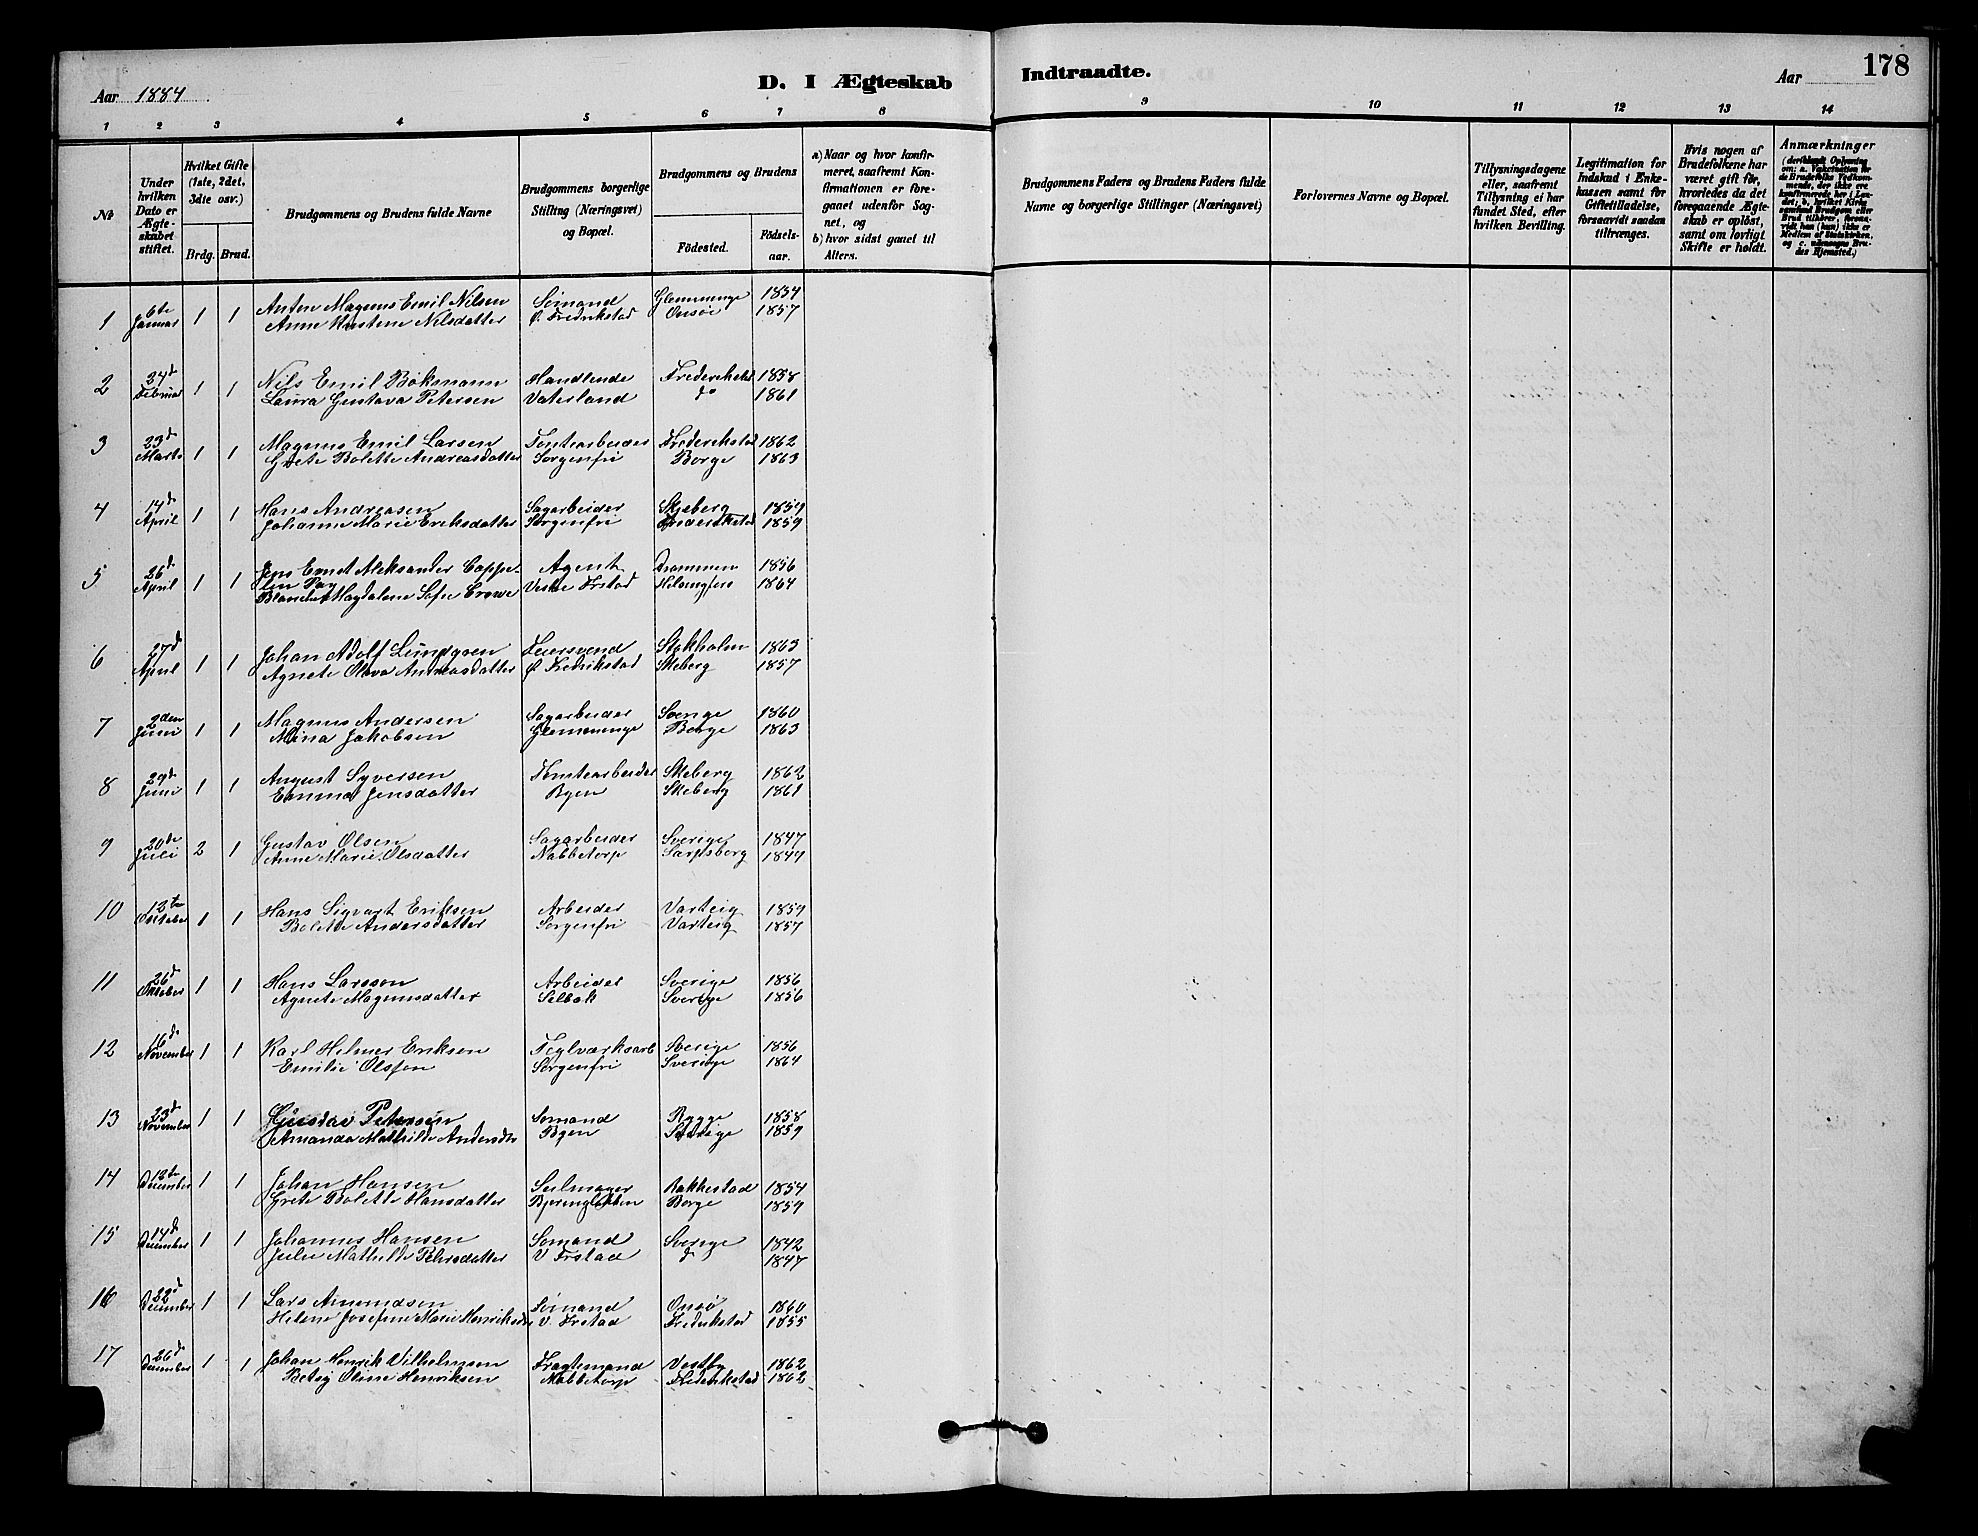 178
Aar 1884
D. I Ægteskab Indtraadte.
Aar
1 2 3 4 5 6 7 8 9 10 11 12 13 14
No
Under hvilken Dato er Ægteskabet stiftet.
Hvilket Gifte (1ste, 2det, 3dte osv.)
Brdg. Brud.
Brudgommens og Brudens fulde Navne
Brudgommens borgerlige Stilling (Næringsvei) og Bopæl.
Brudgommens og Brudens
Födested.
Födselsaar.
a) Naar og hvor konfirmeret, saafremt Konfirmationen er foregaaet udenfor Sognet, og
b) hvor sidst gaaet til Alters.
Brudgommens Faders og Brudens Faders fulde Navne og borgerlige Stillinger (Næringsvei)
Forlovernes Navne og Bopæl.
Tillysningsdagene eller, saafremt Tillysning ei har fundet Sted, efter hvilken Bevilling.
Legitimation for Indskud i Enkekassen samt för Giftetilladelse, forsaavidt saadan tiltrænges.
Hvis nogen af Brudefolkene har været gift för, hvorledes da det foregaaende Ægteskab er oplöst, samt om lovligt Skifte er holdt.
Anmærkninger
1 6te Januar 1 1 Anton Magnus Emil Nilsen Sømand Glemminge 1854
Anne Kirstine Nilsdatter Ø. Fredrikstad Onsø 1857
2 24d Februar 1 1 Nils Emil Bökmann Handlende Frederikstad 1858
Laura Gustava Petersen Vaterland do 1861
3 23d Marts 1 1 Magnus Emil Larsen Tomtearbeider Frederikstad 1862
Grete Bolette Andreasdatter Sorgenfri Borge 1863
4 14d April 1 1 Hans Andreasen Sagarbeider Skjeberg 1859
Johanne Marie Eriksdatter Sorgenfri Frederikstad 1859
5 26d April 1 1 Jens Ernst Aleksander Cappe- Agent Drammen 1856
len Pay
Blanche Magdalene Sofie Crowe Vestre Frstad Helsingfors 1864
6 27d April 1 1 Johan Adolf Lundgren Feiersvend Stokholm 1863
Agnete Olava Andreasdatter Ø. Fredrikstad Skeberg 1857
7 2den Juni 1 1 Magnus Andersen Sagarbeider Sverige 1860
Mina Jakobsen Glemminge Borge 1863
8 29d Juni 1 1 August Syversen Tomtearbeider Skeberg 1862
Emma Jensdatter Byen Skeberg 1861
9 20de Juli 2 1 Gustav Olsen Sagarbeider Sverige 1847
Anne Marie Olsdatter Nabbetorp Sarpsborg 1849
10 12te Oktober 1 1 Hans Sigvart Eriksen Arbeider Varteig 1859
Bolette Andersdatter Sorgenfri Varteig 1857
11 26d Oktober 1 1 Hans Larsson Arbeider Sverige 1856
Agnete Magnusdatter Selbak Sverige 1856
12 16d November 1 1 Karl Helmer Eriksen Teglværksarb Sverige 1856
Emilie Olsen Sorgenfri Sverige 1864
13 23d November 1 1 Gustav Petersen Somand Rygge 1858
Amanda Mathilde Andersdtr Byen Sverige 1859
14 12te December 1 1 Johan Hansen Seilmager Rakkestad 1854
Grete Bolette Hansdatter Bjørngløkken Borge 1859
15 14d December 1 1 Johannes Hansen Somand Sverige 1842
Julie Mathilde Petersdatter V Frstad d 1847
16 22d December 1 1 Lars Amundsen Sømand Onsø 1860
Helene Josefine Marie Henriksdtr V. Frstad Fredrikstad 1855
17 26d December 1 1 Johan Henrik Vilhelmsen Fragtemand Vestby 1862
Betsy Oline Henriksen Nabbetorp Frederikstad 1862